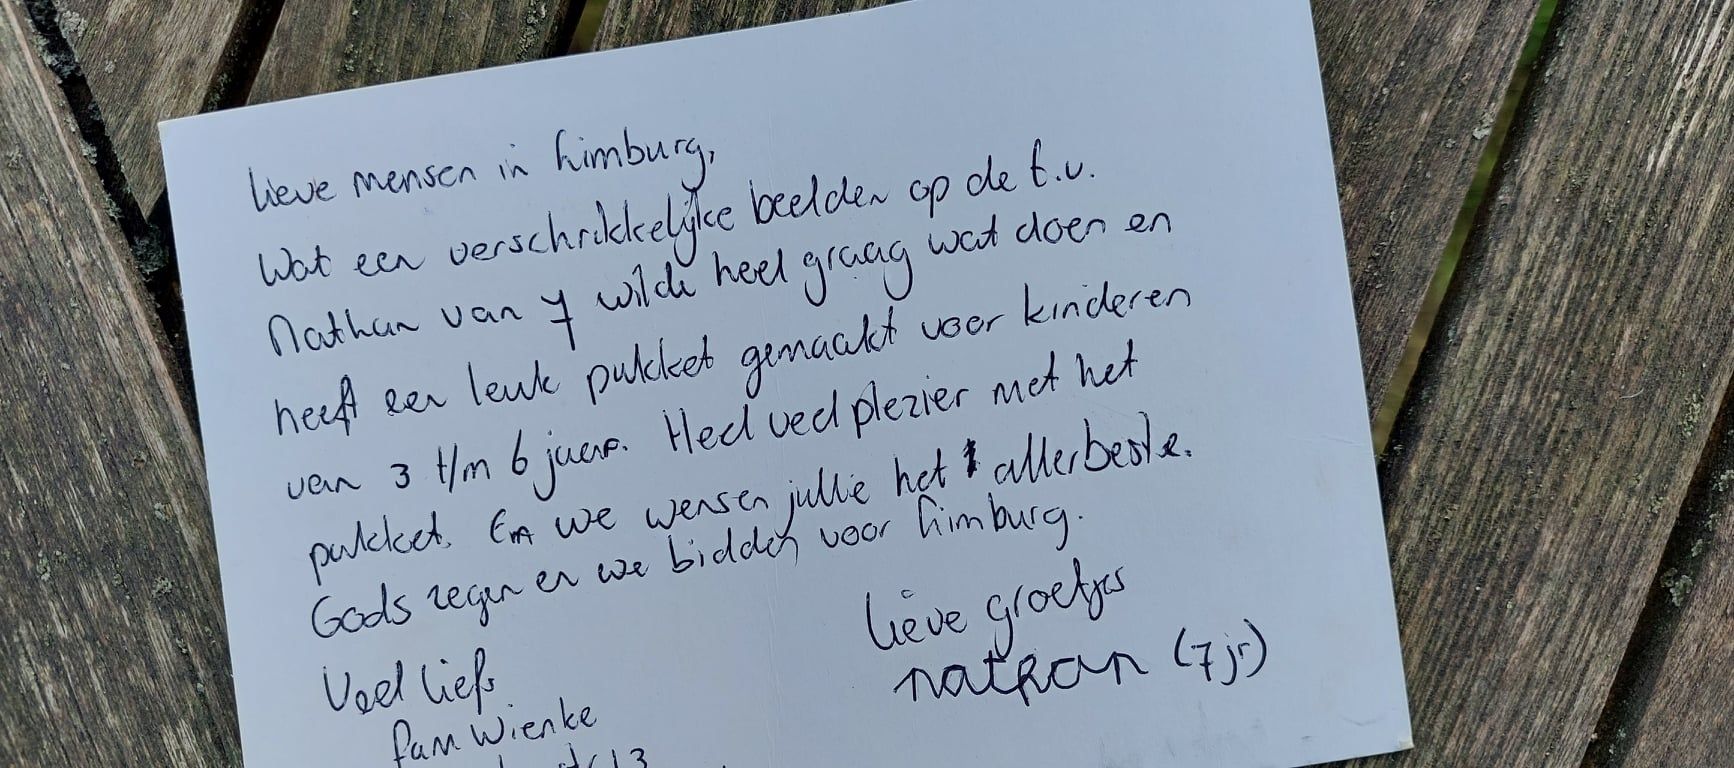 Lieve mensen in Limburg,
Wat een verschrikkelijke beelden op de t.v.
Nathan van 7 wilde heel graag wat doen en
heeft een leuk pakket gemaakt voor kinderen
van 3 t/m 6 jaar. Heel veel plezier met het
pakket. En we wensen jullie het allerbeste.
Gods zegen en we bidden voor Limburg.
Lieve groetjes
nathan (7 jr)
Veel liefs
fam Wienke